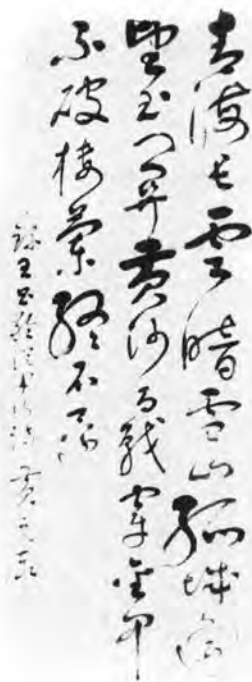 青海長雲暗雪山孤城遥
望玉门关黄沙百戰穿金甲
不破樓蘭終不還
録王昌齡從軍行詩 黄